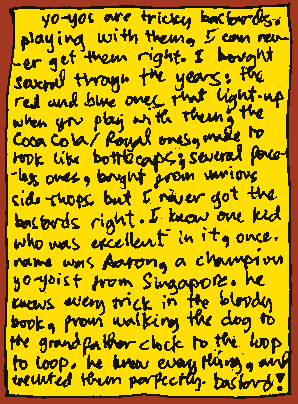 yo-yos are tricky bastards.
playing with them, I can nev-
er get them right. I bought
several through the years: the
red and blue ones that light-up
when you play with them, the
Coca Cola/Royal ones, made to
look like bottlecaps; several face-
less ones, bought from various
side-shops. but I never got the
bastards right. I knew one kid
who was excellent in it, once.
name was Aaron, a champion
yo-yoist from Singapore. he
knows every trick in the bloody
book, from walking the dog to
the grandfather clock to the loop
to loop. he knew everything, and
executed them perfectly. bastard!